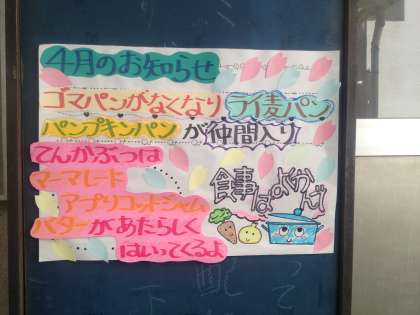 4月のお知らせ
ゴマパンがなくなりライ麦パン
パンプキンパンが仲間入り
てんかぶつは
マーマレード
アプリコットジャム
バターがあたらしく
はいってくるよ
食事はよくかんで
配って
下